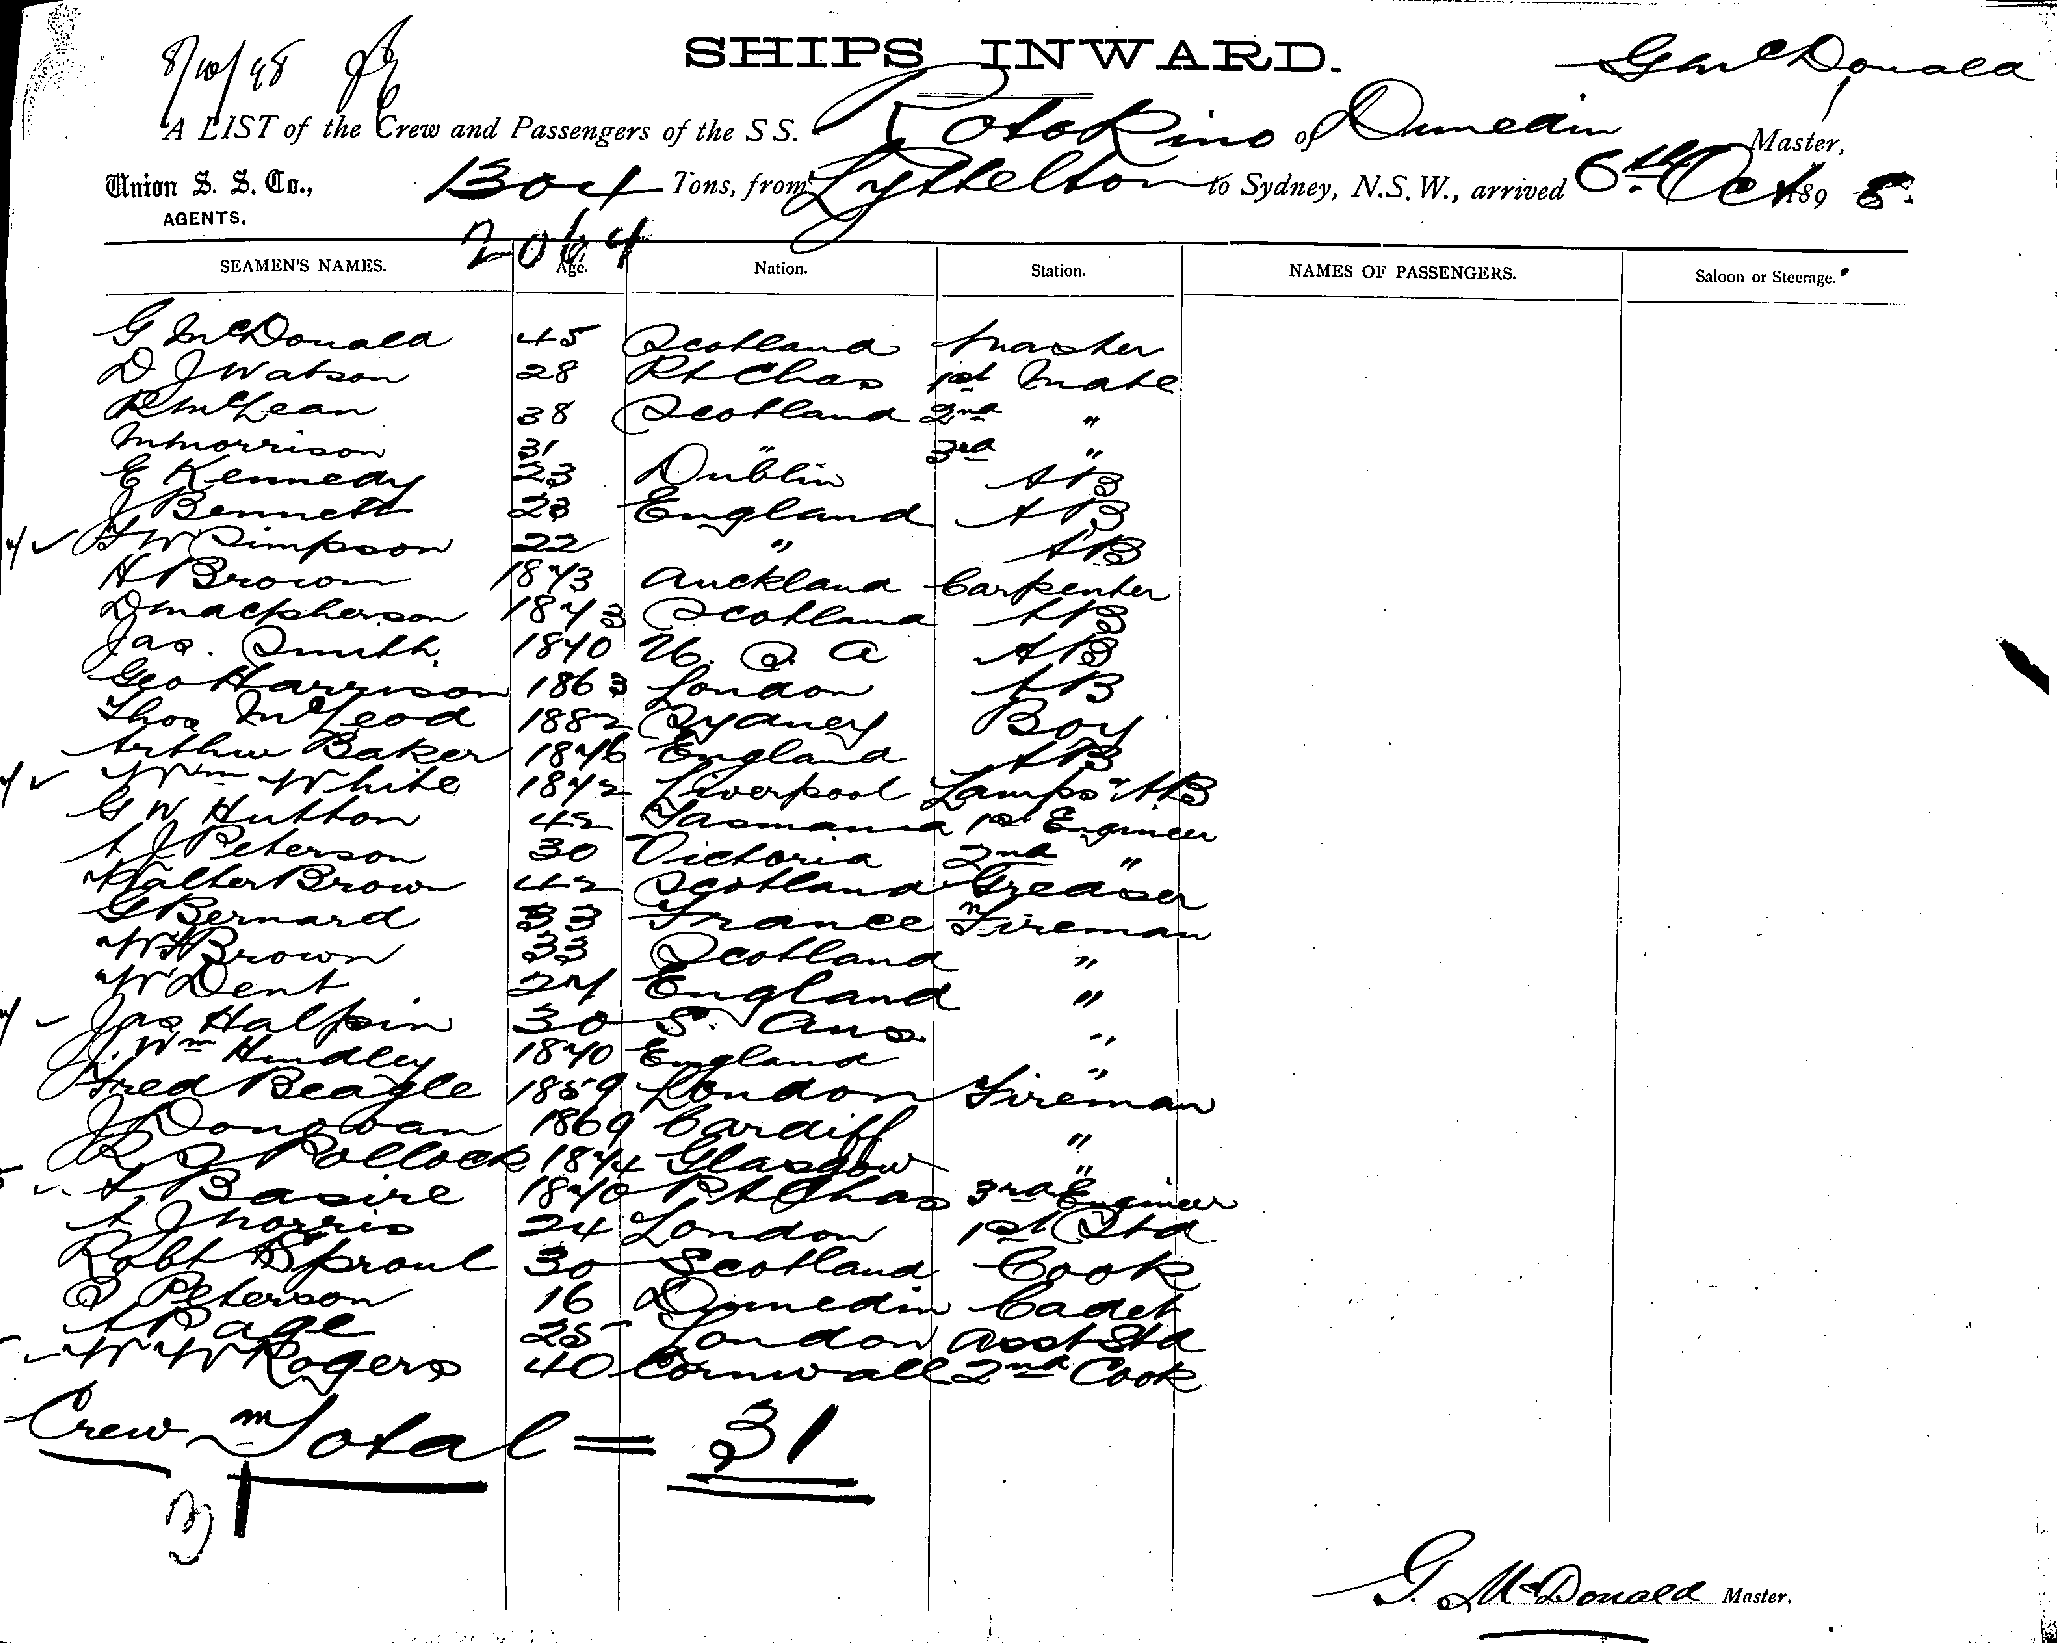 8/10/98
SHIPS INWARD.
G McDonald
A LIST of the Crew and Passengers of the S S. Rotokino of Dunedin Master,
Union S. S. Co., 1304 Tons, from Lyttelton to Sydney, N.S.W., arrived 6th Oct 1898.
AGENTS.
2064
SEAMEN'S NAMES. Age. Nation. Station. NAMES OF PASSENGERS. Saloon or Steerage.
G McDonald 45 Scotland Master
D J Watson 28 Pt Chas 1st Mate
R McLean 38 Scotland 2nd "
M Morrison 31 " 3rd "
E Kennedy 23 Dublin AB
J Bennett 23 England AB
H W Simpson 22 " AB
H Brown 1873 Auckland Carpenter
D Macpherson 1873 Scotland AB
Jas. Smith. 1840 U. S. A AB
Geo Harrison 1863 London AB
Thos McLeod 1882 Sydney Boy
Arthur Baker 1876 England AB
Wm White 1872 Liverpool Lamps & AB
G W Hutton 42 Tasmania 1st Engineer
A J Peterson 30 Victoria 2nd "
Walter Brown 42 Scotland Greaser
G Bernard 33 France Fireman
W Brown 33 Scotland "
W Dent 27 England "
Jas Halpin 30 S. Aus. "
J. Wm Hindley 1870 England "
Fred Beagle 1859 London Fireman
J Donovan 1869 Cardiff "
R J Pollock 1874 Glasgow "
A Basire 1870 Pt Chas 3rd Engineer
A J Morris 24 London 1st Std
Robt Sproul 30 Scotland Cook
S Peterson 16 Dunedin Cadet
A Page 25 London Asst Std
W W Rogers 40 Cornwall 2nd Cook
Crew Total = 31
31
G. McDonald Master.